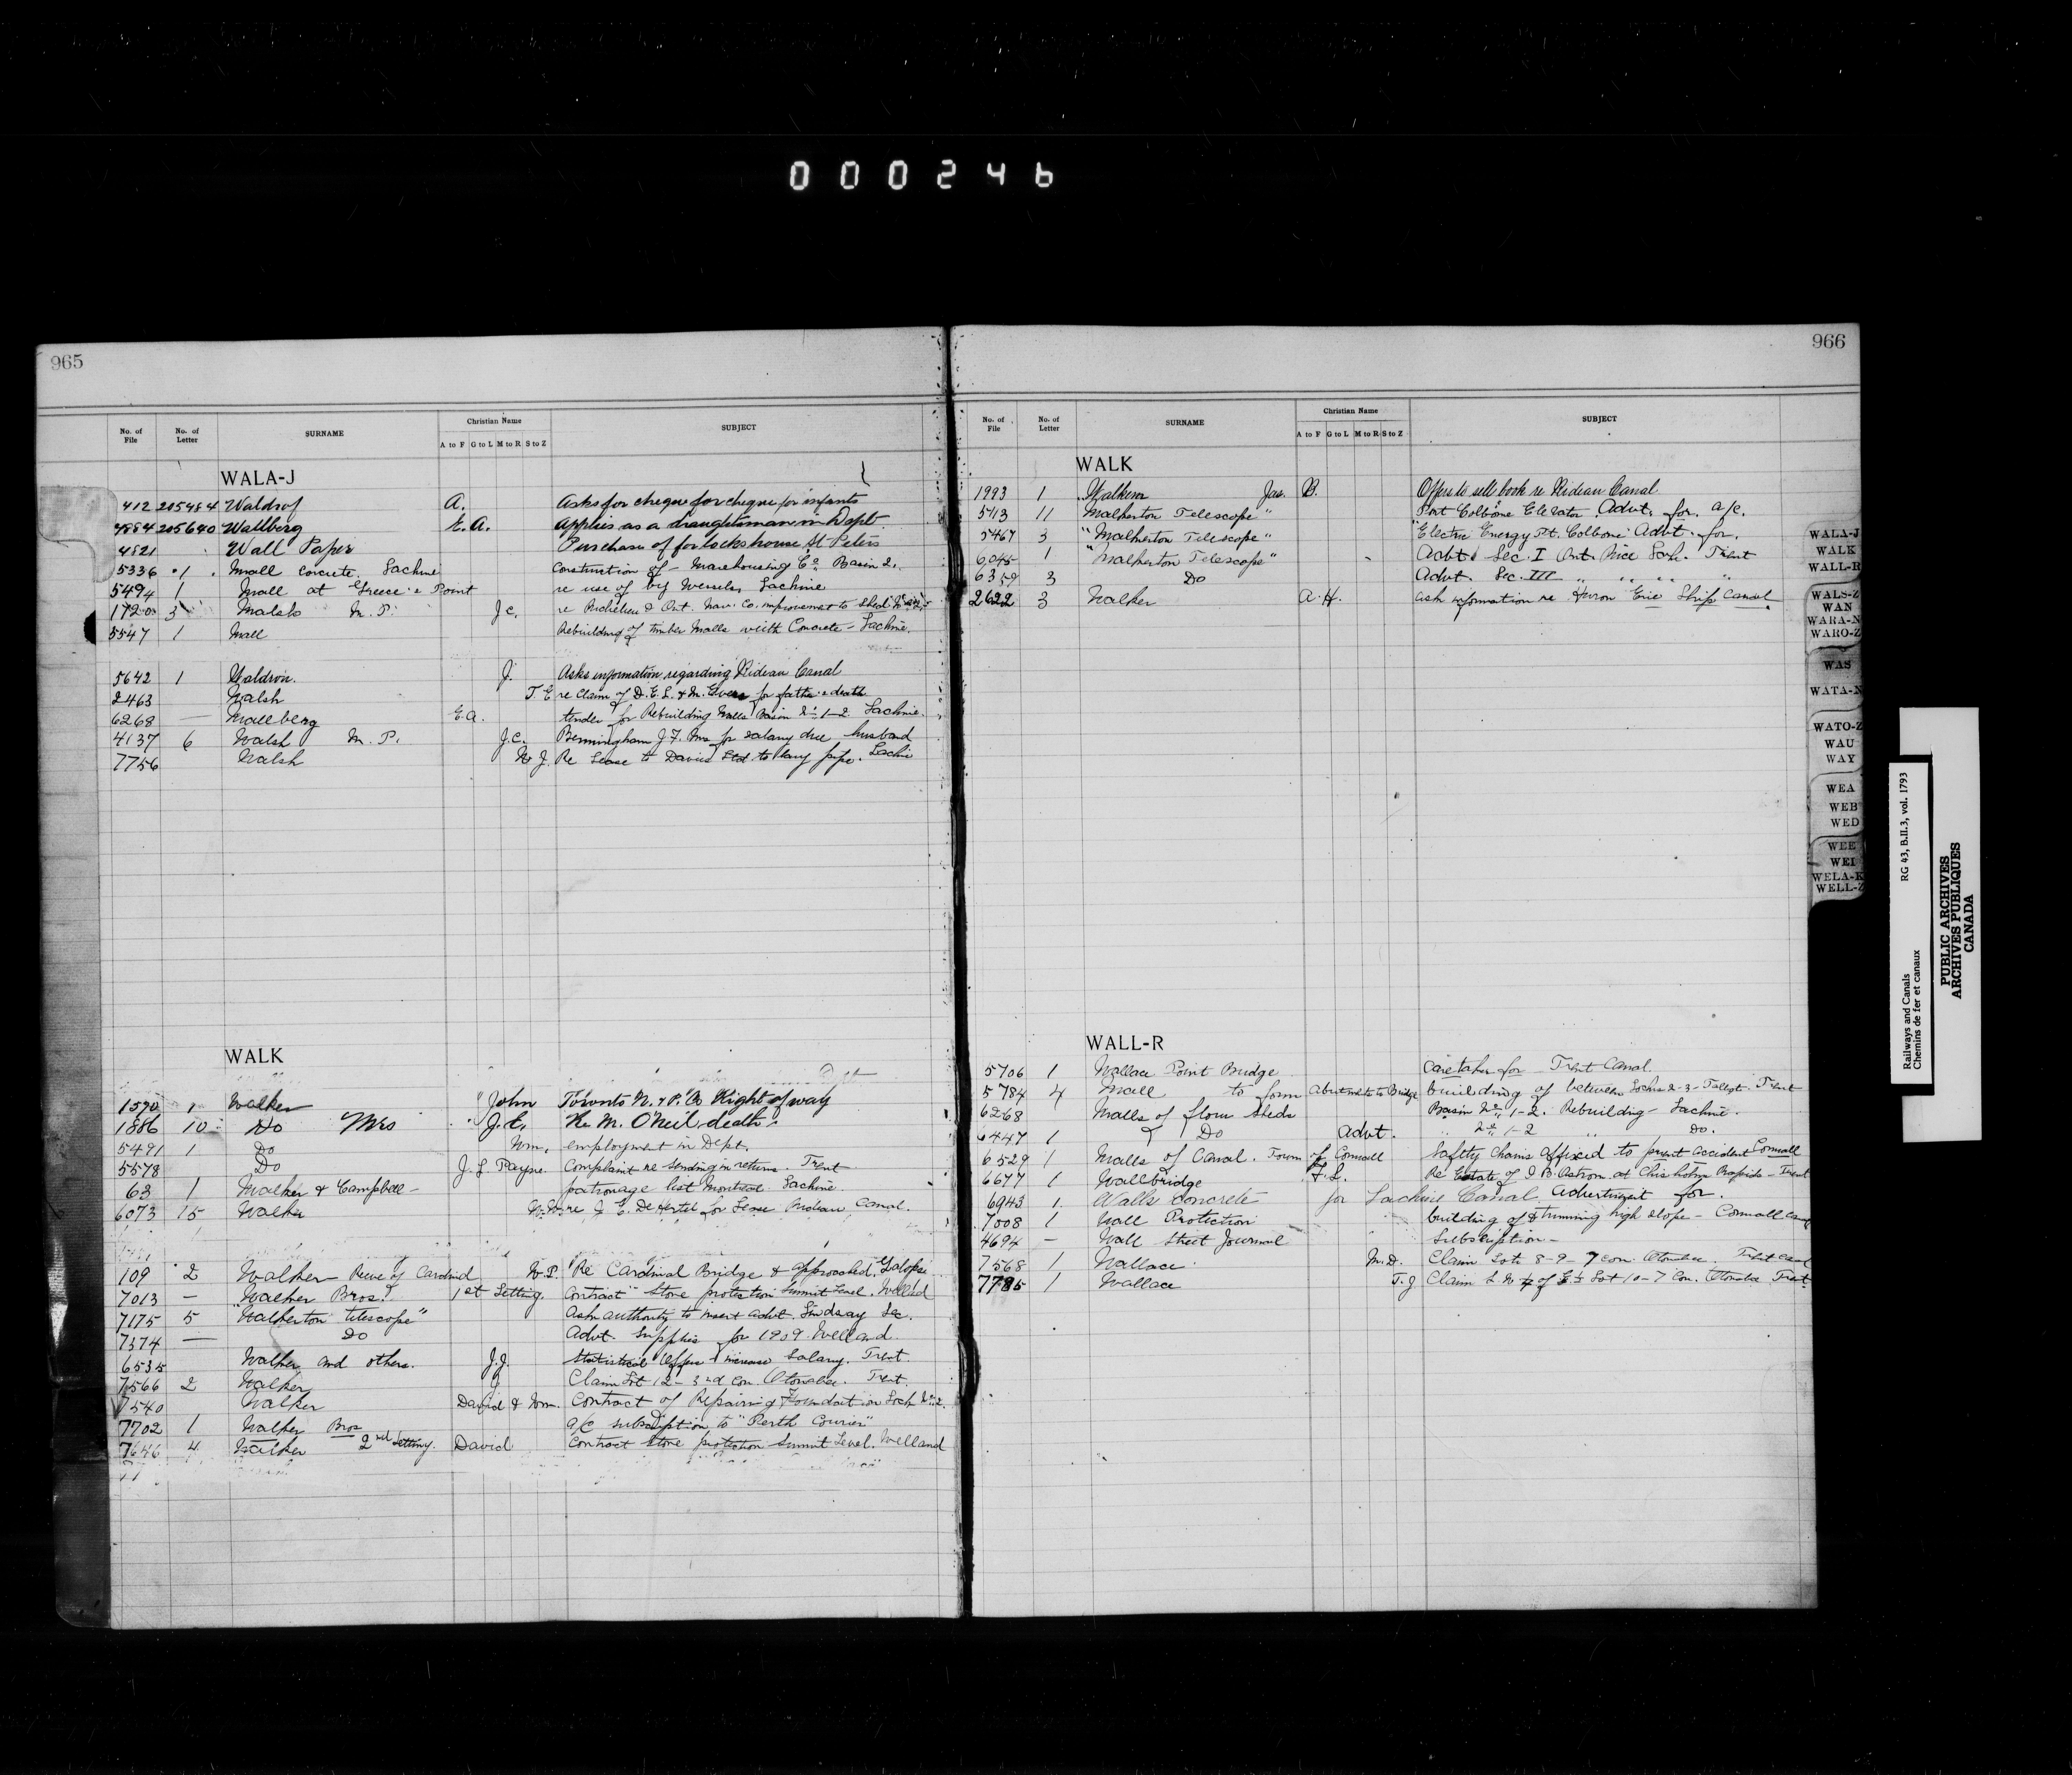 000246
965
No. of File No. of Letter SURNAME Christian Name A to F G to L M to R S to Z SUBJECT
WALA-J
412 205484 Waldrof A. Asks for cheque for cheque for infants
4884 205640 Wallberg E. A. Applies as a draughtsman in Dept.
4821 Wall Paper Purchase of for locks house St Peters
5336 1 Wall concrete Lachine Construction of - Warehousing Co. Basin 2.
5494 1 Wall at Greece's Point re use of by Vessels, Lachine
1720 3 Walsh M. P. J C. re Richelieu & Ont. Nav. Co. improvement to Shed
5547 1 Wall Rebuilding of timber Walls with Concrete - Lachine.
5642 1 Waldron. J. Asks information regarding Rideau Canal
2463 Walsh T. E re Claim of D. E. L. & M. for father's death
6268 — Wallberg E. A. tender for Rebuilding Walls Basin No. 1-2. Lachine.
4137 6 Walsh M. P. J. C. Bermingham J. F. Mrs for salary due husband
7756 Walsh W. J. Re Lease to Davies Ltd to lay pipe. Lachine
WALK
1590 1 Walker John Toronto N. & P. Co Right of way
1886 10 Do Mrs J. C. Re M. O'Neil death.
5491 1 Do Wm. employment in Dept.
5578 Do J. L Payne. Complaint re sending in returns. Trent
63 1 Walker & Campbell - patronage list Montreal Lachine.
6073 15 Walker re J. C. De Hertel for Lease Rideau Canal.
109 2 Walker - Reeve of Cardinal W. P. Re Cardinal Bridge & approaches. Galops
7013 — Walker Bros. 1st Letting. Contract Stone protection Summit Level. Welland
7175 5 "Walkerton telescope" Ask authority to insert advt. Lindsay Sec.
7374 — Do Advt. Supplies for 1909 Welland.
6535 Walker and others. J. J. Statistical Office increase Salary. Trent.
7566 2 Walker J Claim Lot 12 - 3rd Con. Otonabee. Trent.
7540 Walker David & Wm. Contract of Repairing Foundation Lock No. 2.
7702 1 Walker Bros a/c subscription to "Perth Courier"
7646 4 Walker 2nd Letting. David Contract Stone protection Summit Level. Welland
966
No. of File No. of Letter SURNAME Christian Name A to F G to L M to R S to Z SUBJECT
WALK
1993 1 Walkem Jas. B. Offers to sell book re Rideau Canal
5113 11 Walkerton Telescope" Port Colborne Elevator Advt. for a/c.
5467 3 "Walkerton Telescope" Electric Energy Pt. Colborne Advt. for.
6045 1 "Walkerton Telescope" Advt. Sec. I Ont. Rice Lake. Trent
6359 3 Do Advt. Sec. III " " " "
2622 3 Walker A. H. ask information re Huron Erie Ship Canal
WALL-R
5706 1 Wallace Point Bridge Caretaker for - Trent Canal.
5784 4 Wall to form abutments to Bridge building of between Locks 2-3 - Trent
6268 Walls of flour Sheds Basin No. 1-2. Rebuilding - Lachine.
6447 1 Do Advt. " No. 1-2 " Do.
6529 1 Walls of Canal. Town of Cornwall Safety Chains affixed to prevent accident Cornwall
6677 1 Wallbridge F. L. Re Estate of J. B. Ostrom at Chisholm Rapids - Trent
6943 1 Walls concrete for Lachine Canal Advertisment for.
7008 1 Wall Protection building of & trimming high slope - Cornwall Canal
4694 — Wall Street Journal Subscription -
7568 1 Wallace M. D. Claim Lots 8-9 - 7 con. Otonabee. Trent Canal
7785 1 Wallace T. J Claim S. W ¼ of E ½ Lot 10-7 Con. Otonabee Trent
WALA-J
WALK
WALL-R
WALS-Z
WAN
WARA-N
WARO-Z
WAS
WATA-N
WATO-Z
WAU
WAY
WEA
WEB
WED
WEE
WEI
WELA-K
WELL-Z
Railways and Canals RG 43, B.II.3, vol. 1793
Chemins de fer et canaux
PUBLIC ARCHIVES
ARCHIVES PUBLIQUES
CANADA